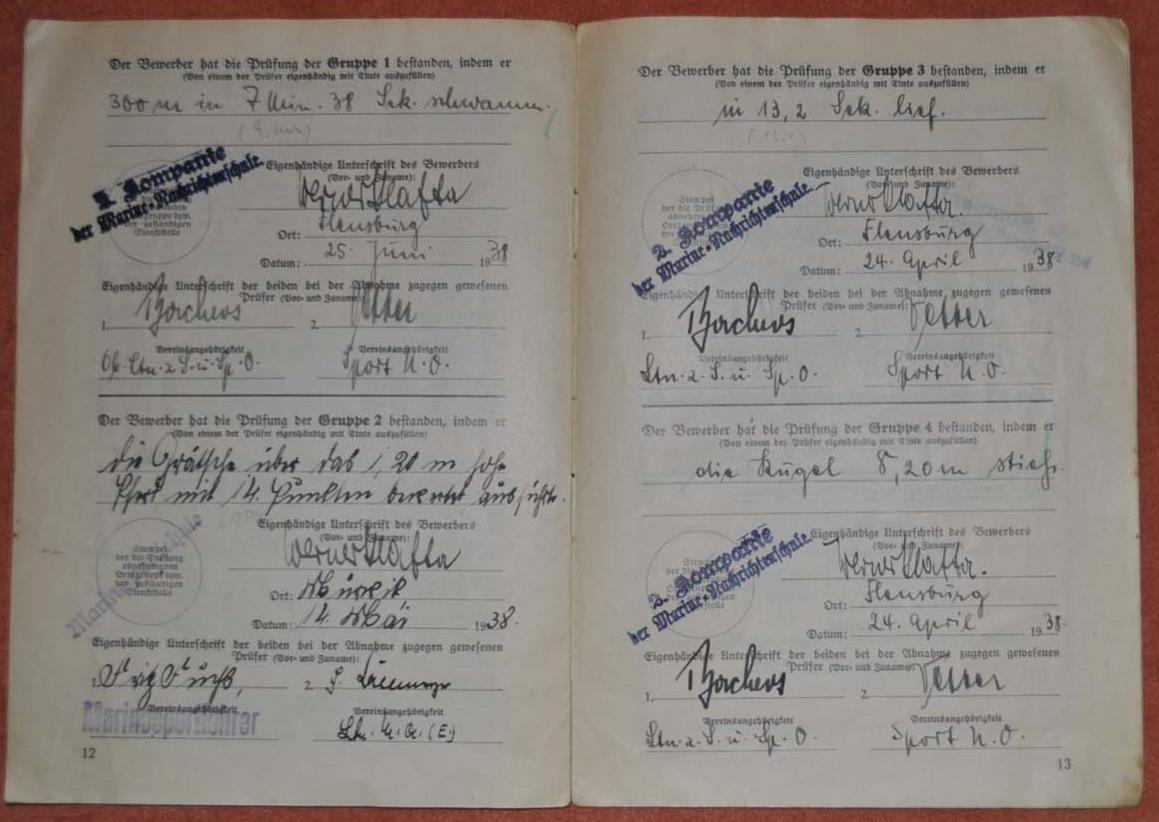 Der Bewerber hat die Prüfung der Gruppe 1 bestanden, indem er
(Von einem der Prüfer eigenhändig mit Tinte auszufüllen)
300 m in 7 Min. 38 Sek. schwamm.
2. Kompanie
der Marine-Nachrichtenschule.
Eigenhändige Unterschrift des Bewerbers
(Vor- und Zuname):
Werner Klafta
Ort: Flensburg
Datum: 25. Juni 1938
Eigenhändige Unterschrift der beiden bei der Abnahme zugegen gewesenen
Prüfer (Vor- und Zuname):
1. Borchers 2. Vetter
Vereinsangehörigkeit Vereinsangehörigkeit
Ob. Ltn. z. S. u. Sp. O. Sport U. O.
Der Bewerber hat die Prüfung der Gruppe 2 bestanden, indem er
(Von einem der Prüfer eigenhändig mit Tinte auszufüllen)
die Grätsche über das 1,20 m hohe
Pferd mit 14 Punkten bewertet ausführte.
Eigenhändige Unterschrift des Bewerbers
(Vor- und Zuname):
Werner Klafta
Stempel
der die Prüfung
abnehmenden
Ortsgruppe bzw.
der zuständigen
Dienststelle
Ort: Mürwik
Datum: 14. Mai 1938.
Eigenhändige Unterschrift der beiden bei der Abnahme zugegen gewesenen
Prüfer (Vor- und Zuname):
1. Fritz 2.
Vereinsangehörigkeit Vereinsangehörigkeit
Marinesportlehrer
12
Der Bewerber hat die Prüfung der Gruppe 3 bestanden, indem er
(Von einem der Prüfer eigenhändig mit Tinte auszufüllen)
in 13,2 Sek. lief.
Eigenhändige Unterschrift des Bewerbers
(Vor- und Zuname):
2. Kompanie
der Marine-Nachrichtenschule.
Werner Klafta.
Ort: Flensburg
Datum: 24. April 1938.
Eigenhändige Unterschrift der beiden bei der Abnahme zugegen gewesenen
Prüfer (Vor- und Zuname):
1. Borchers 2. Vetter
Vereinsangehörigkeit Vereinsangehörigkeit
Ltn. z. S. u. Sp. O. Sport U. O.
Der Bewerber hat die Prüfung der Gruppe 4 bestanden, indem er
(Von einem der Prüfer eigenhändig mit Tinte auszufüllen)
die Kugel 8,20 m stieß.
Eigenhändige Unterschrift des Bewerbers
(Vor- und Zuname):
2. Kompanie
der Marine-Nachrichtenschule.
Werner Klafta.
Ort: Flensburg
Datum: 24. April 1938.
Eigenhändige Unterschrift der beiden bei der Abnahme zugegen gewesenen
Prüfer (Vor- und Zuname):
1. Borchers 2. Vetter
Vereinsangehörigkeit Vereinsangehörigkeit
Ltn. z. S. u. Sp. O. Sport U. O.
13